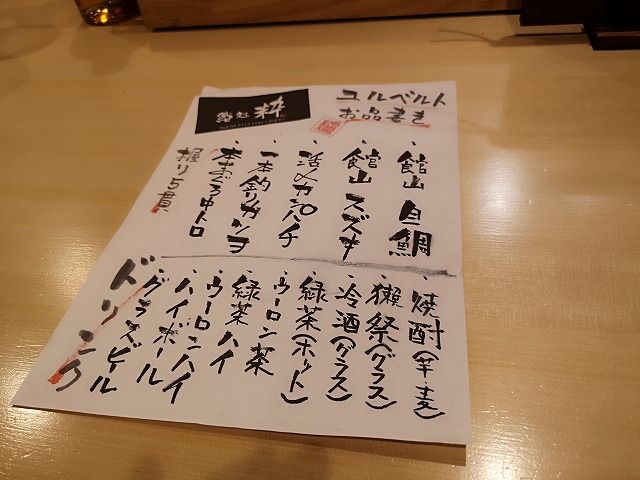 ユルベルト
お品書き
鮨処 粋
・館山 白鯛
・館山 スズキ
・活〆カンパチ
・一本釣りカツヲ
・本まぐろ中トロ
握り5貫
・焼酎(芋・麦)
・獺祭(グラス)
・冷酒(グラス)
・緑茶(ホット)
・ウーロン茶
・緑茶ハイ
・ウーロンハイ
・ハイボール
・グラスビール
ドリンク